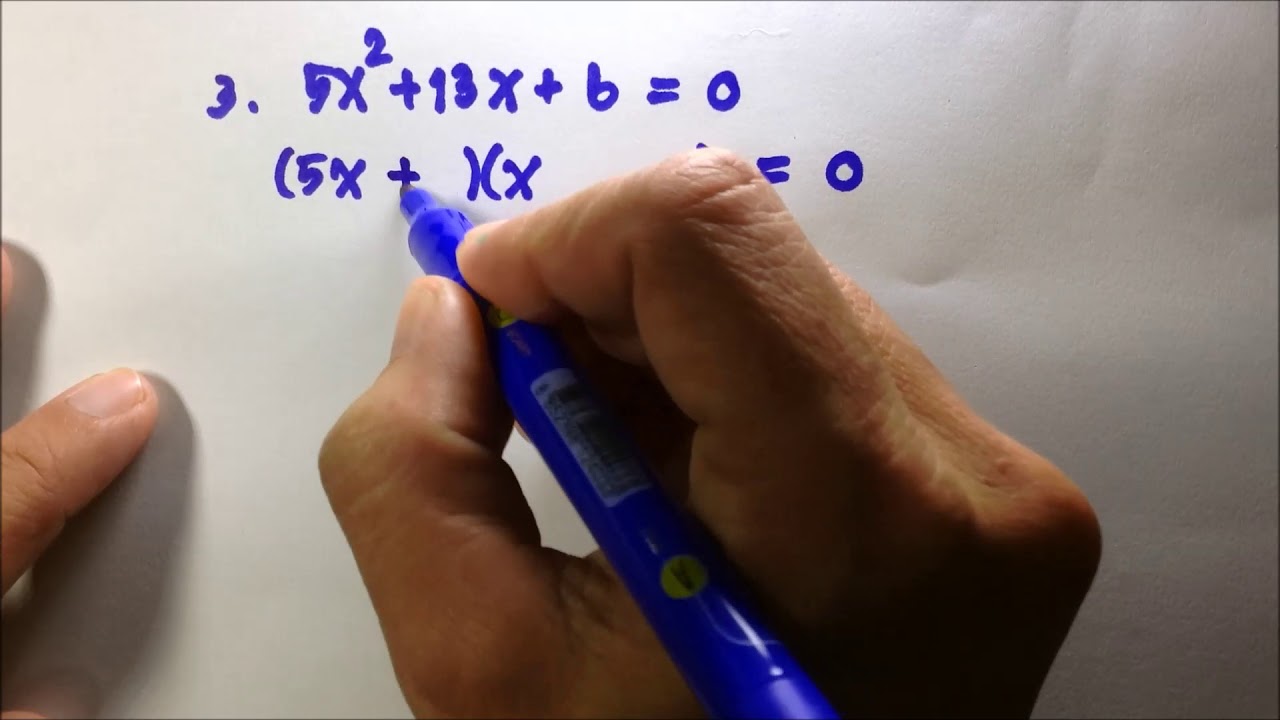 3. 5x² + 13x + 6 = 0
(5x + )(x = 0